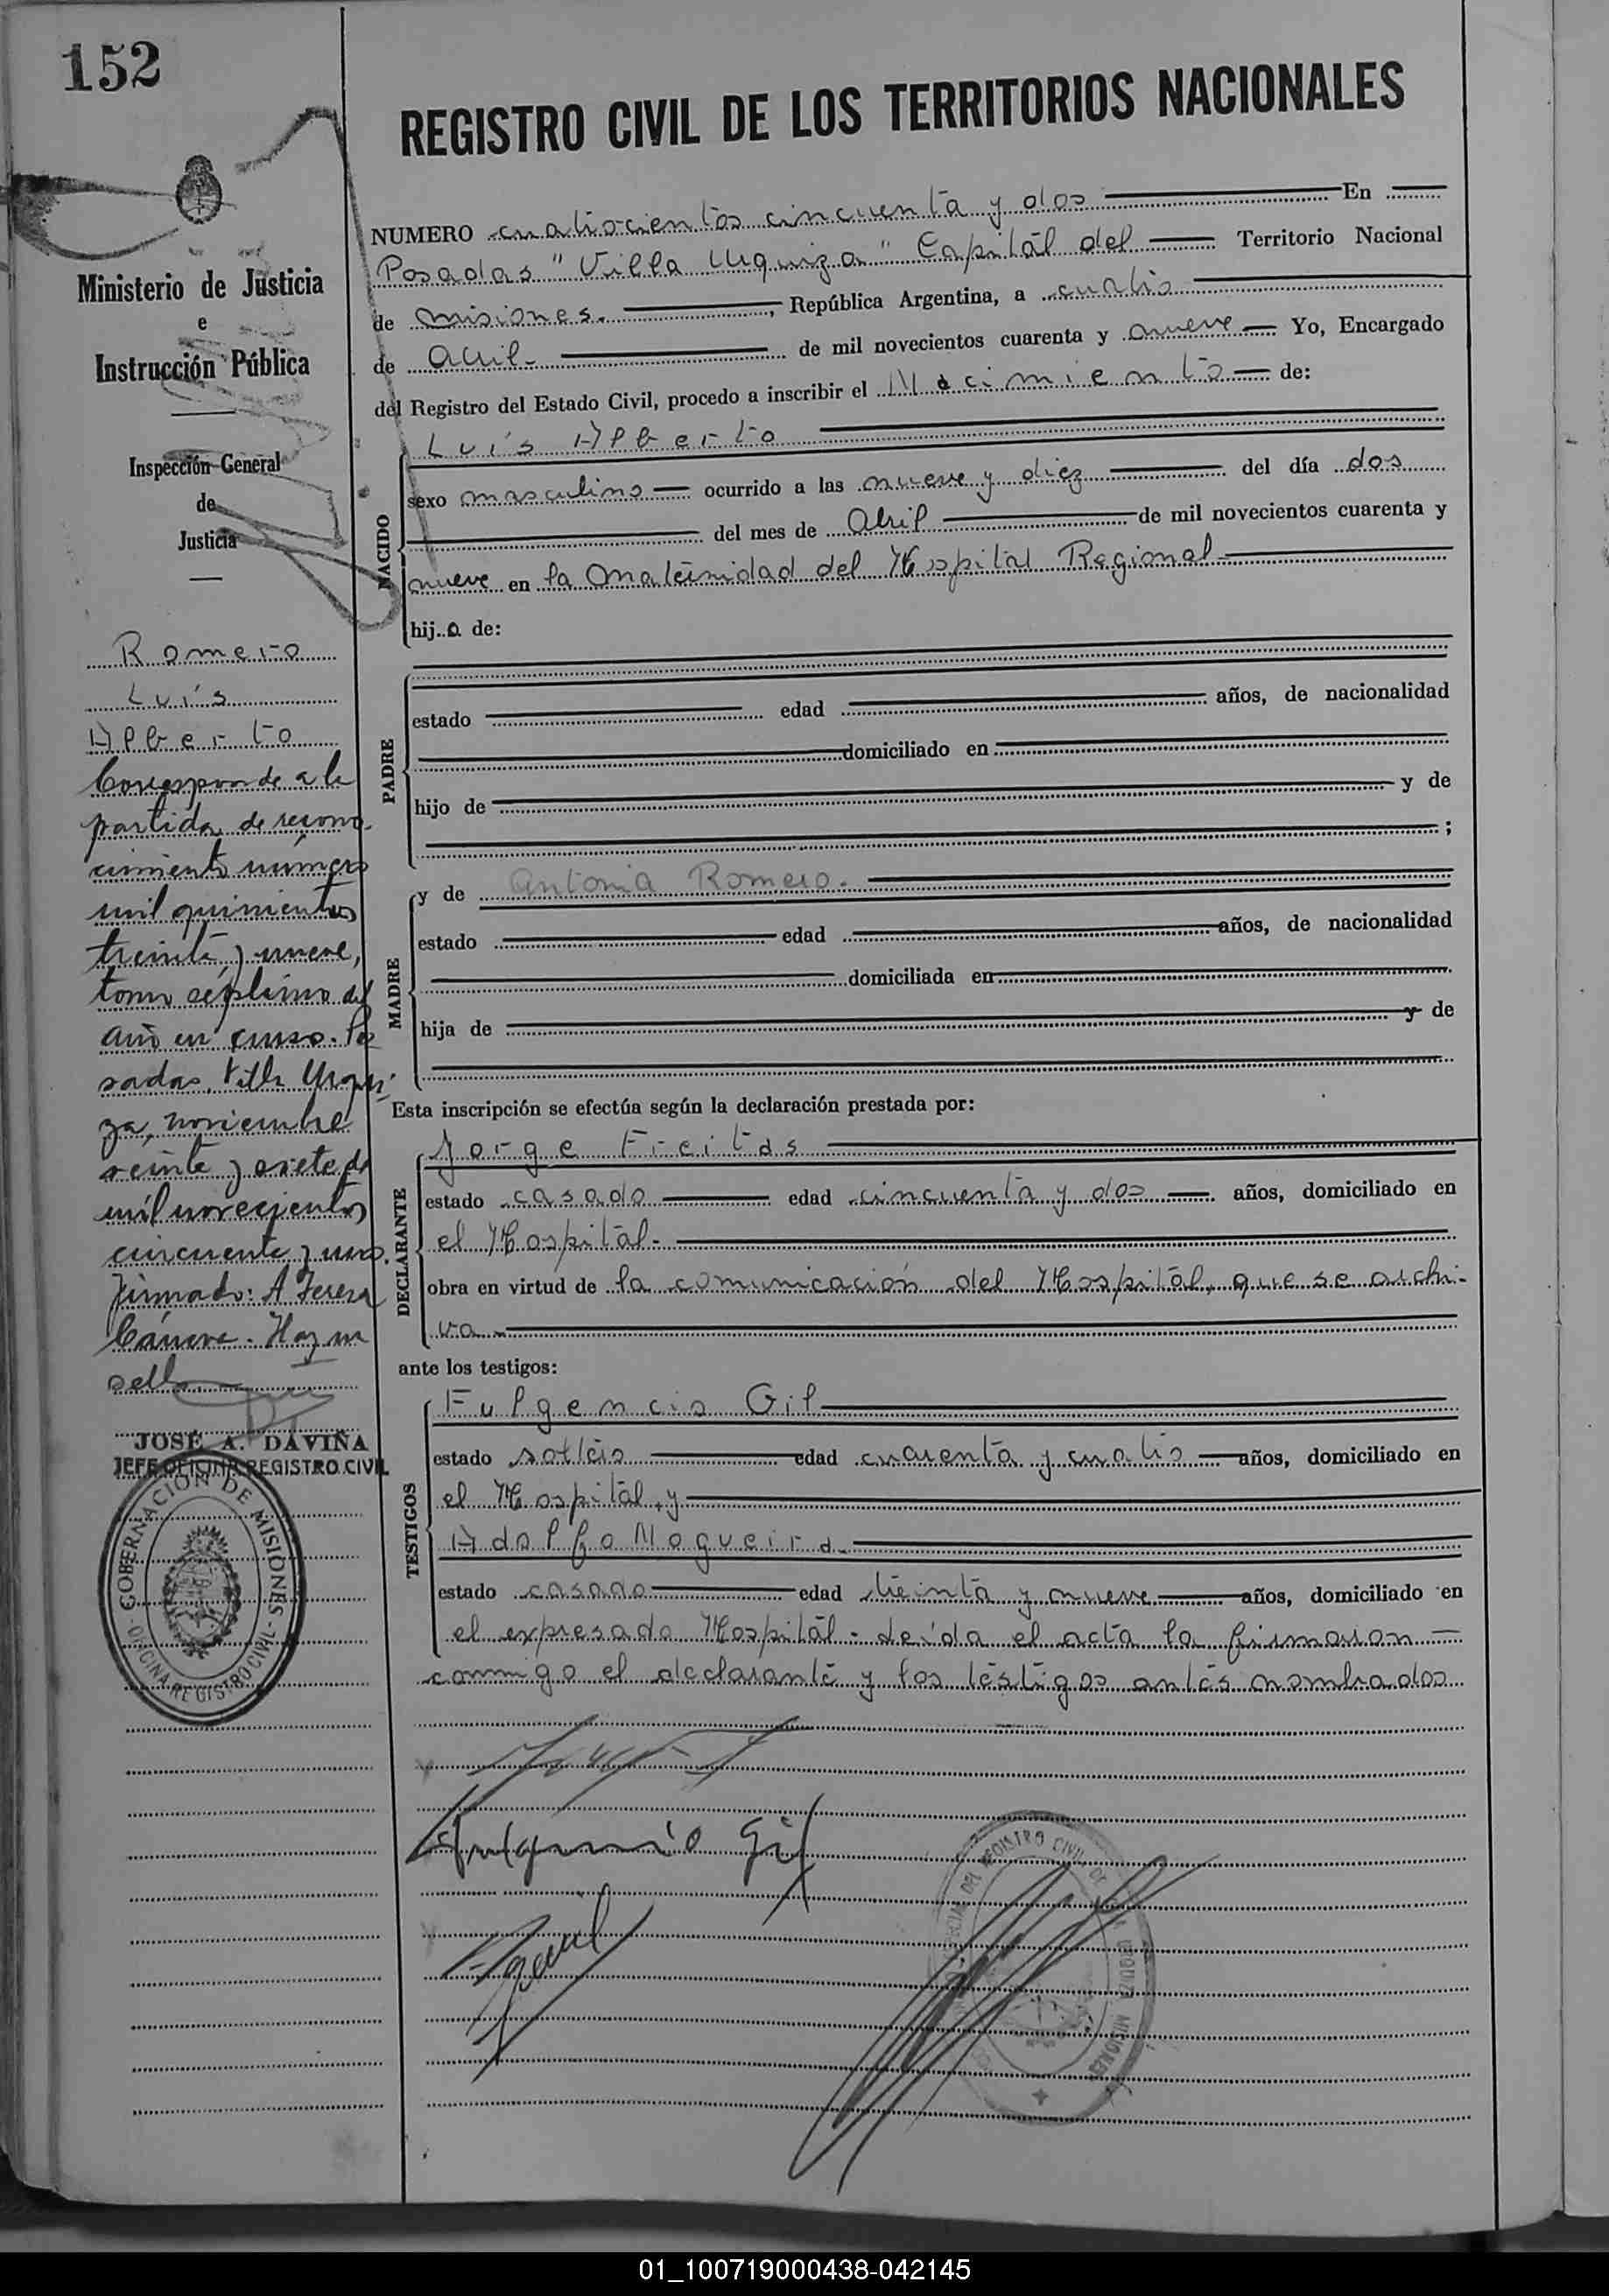 152
REGISTRO CIVIL DE LOS TERRITORIOS NACIONALES
Ministerio de Justicia
e
Instrucción Pública
Inspección General
de
Justicia
Romero
Luis
Alberto
Corresponde a la
partida de recono-
cimiento número
mil quinientos
treinta y nueve,
tomo séptimo del
año en curso. Po
sadas, Villa Urqui-
za, noviembre
veinte y siete de
mil novecientos
cincuenta y uno.
Firmado: A Teresa
Cánova. Hay un
sello
JOSÉ A. DAVIÑA
JEFE OFICINA REGISTRO CIVIL
GOBERNACION DE MISIONES
OFICINA REGISTRO CIVIL
NUMERO cuatrocientos cincuenta y dos En
Posadas "Villa Urquiza" Capital del Territorio Nacional
de misiones. , República Argentina, a cuatro
de abril de mil novecientos cuarenta y nueve Yo, Encargado
del Registro del Estado Civil, procedo a inscribir el Nacimiento de:
NACIDO
Luis Alberto
sexo masculino ocurrido a las nueve y diez del día dos
del mes de Abril de mil novecientos cuarenta y
nueve en la maternidad del Hospital Regional
hijo de:
PADRE
estado edad años, de nacionalidad
domiciliado en
hijo de y de
;
MADRE
y de Antonia Romero.
estado edad años, de nacionalidad
domiciliada en
hija de y de
Esta inscripción se efectúa según la declaración prestada por:
DECLARANTE
Jorge Freitas
estado casado edad cincuenta y dos años, domiciliado en
el Hospital.
obra en virtud de la comunicación del Hospital, que se archi-
va
ante los testigos:
TESTIGOS
Fulgencio Gil
estado soltero edad cuarenta y cuatro años, domiciliado en
el Hospital, y
Adolfo Nogueira
estado casado edad treinta y nueve años, domiciliado en
el expresado Hospital. Leída el acta la firmaron
conmigo el declarante y los testigos antes nombrados
Fulgencio Gil
DEL REGISTRO CIVIL DE URQUIZA MISIONES
01_100719000438-042145